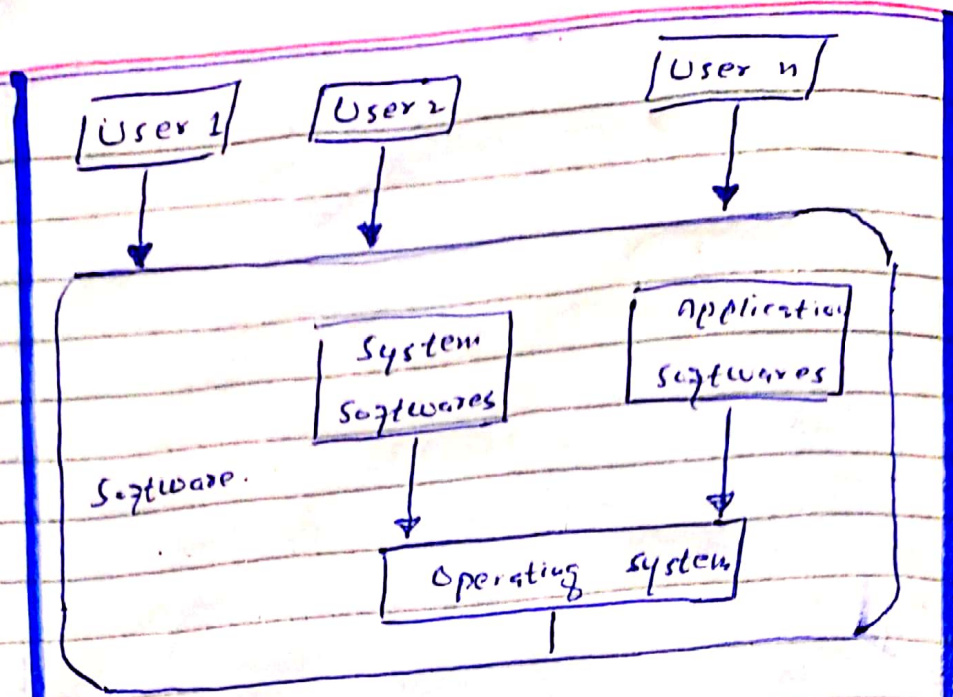 User 1
User 2
User n
System
Softwares
Application
Softwares
Software.
Operating system